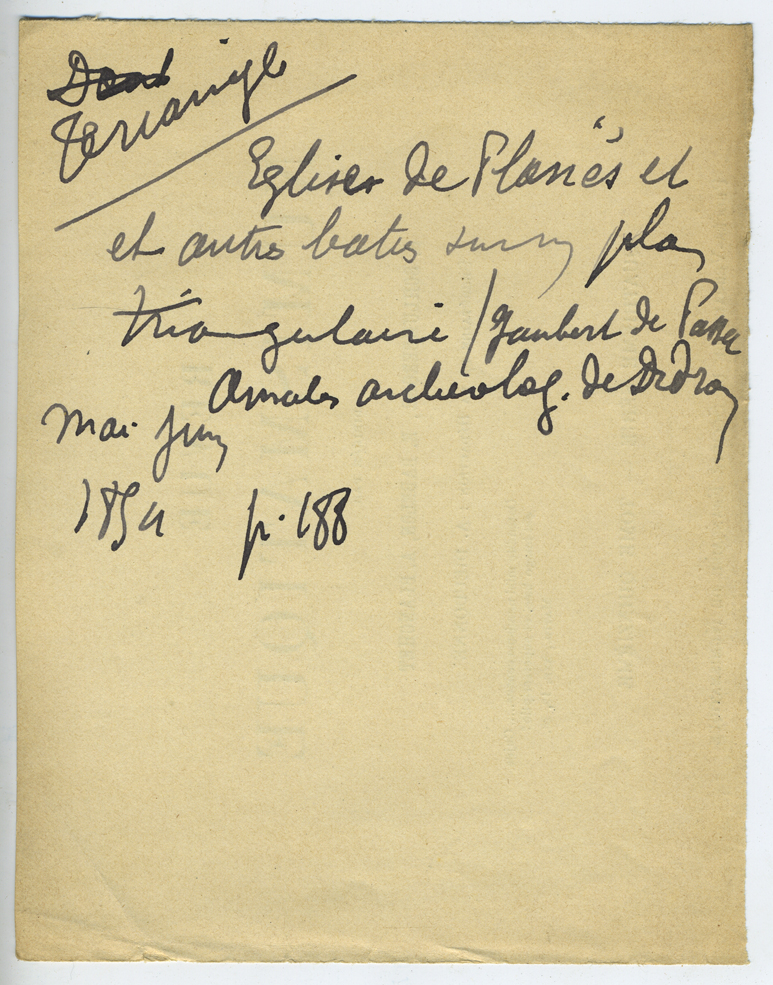 Triangle
Eglises de Planès et
et autres batis sur un plan
triangulaire / Jaubert de Passa
Annales archéolog. de Didron
mai juin
1854 p. 188